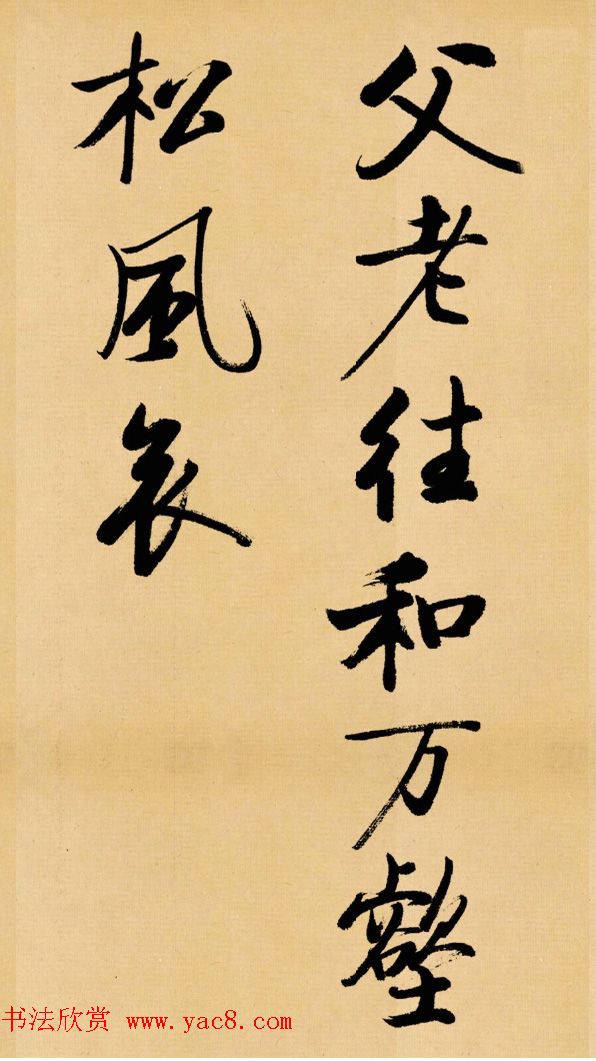 父老往和万壑
松風哀
书法欣赏 www.yac8.com